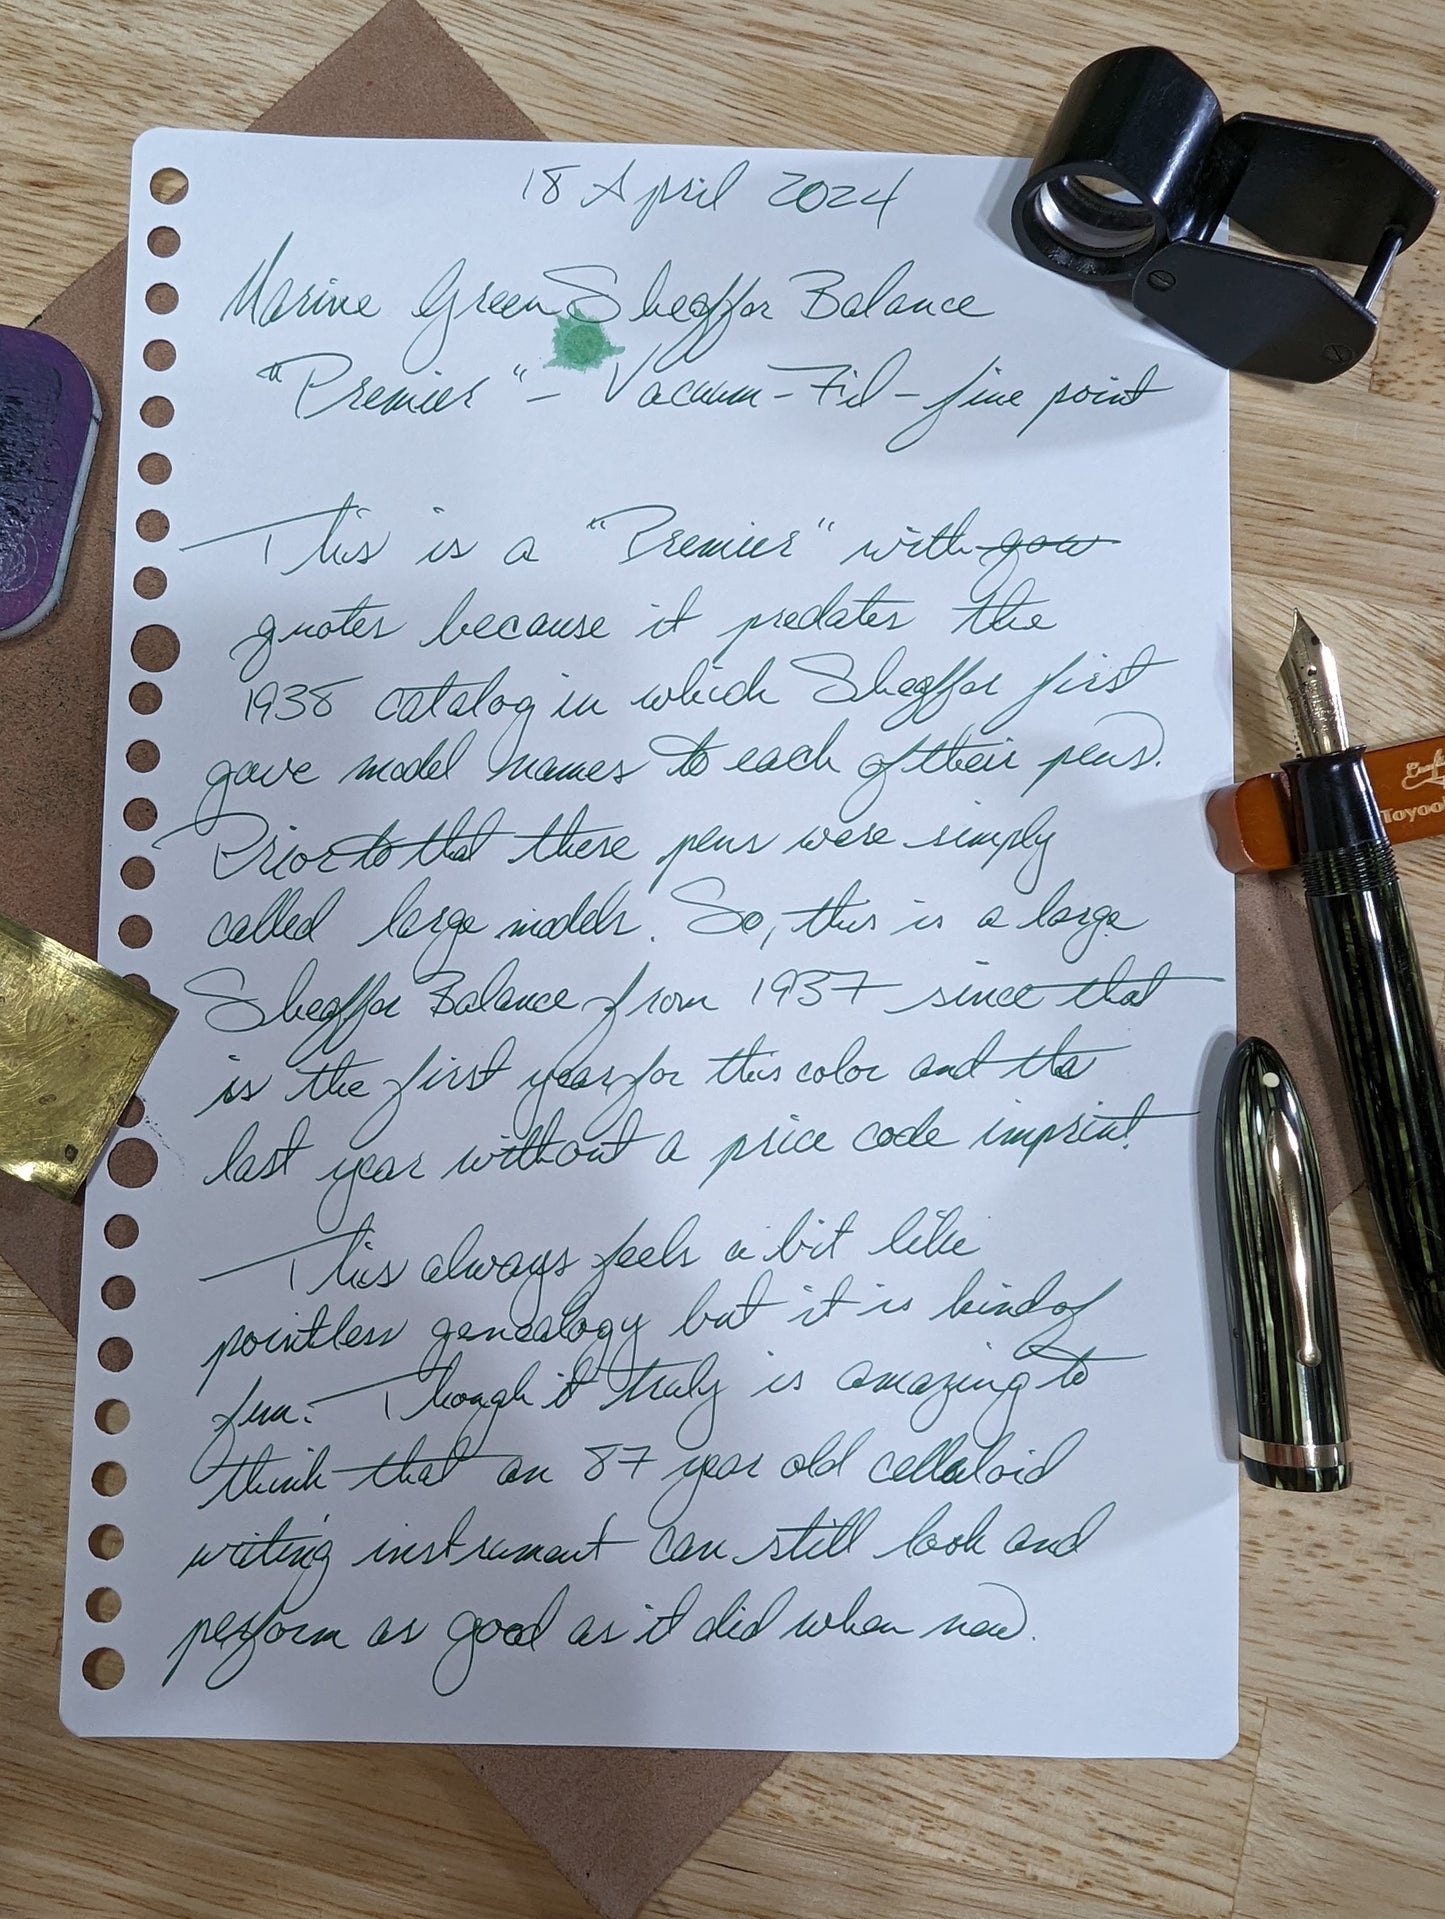 18 April 2024
Marine Green Sheaffer Balance
"Premier" - Vacuum-Fil - fine point
This is a "Premier" with
quotes because it predates the
1938 catalog in which Sheaffer first
gave model names to each of their pens.
Prior to that these pens were simply
called large models. So, this is a large
Sheaffer Balance from 1937 since that
is the first year for this color and the
last year without a price code imprint.
This always feels a bit like
pointless genealogy but it is kind of
fun. Though it truly is amazing to
think that an 87 year old celluloid
writing instrument can still look and
perform as good as it did when new.